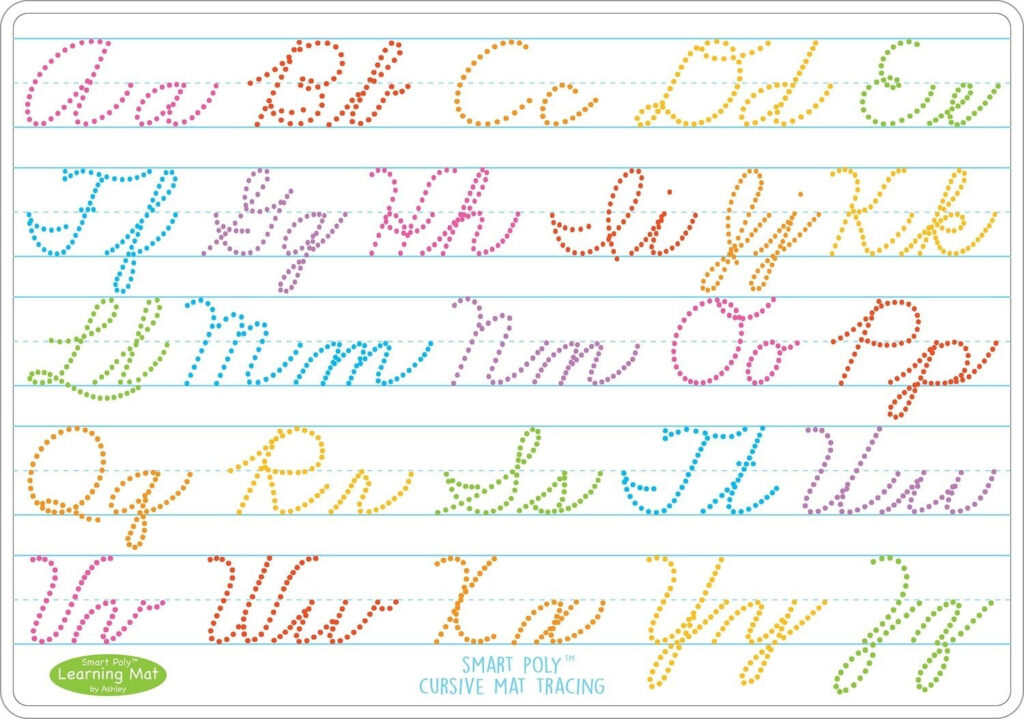 Aa Bb Cc Dd Ee
Ff Gg Hh Ii Jj Kk
Ll Mm Nn Oo Pp
Qq Rr Ss Tt Uu
Vv Ww Xx Yy Zz
Smart Poly™
Learning Mat
by Ashley
SMART POLY™
CURSIVE MAT TRACING